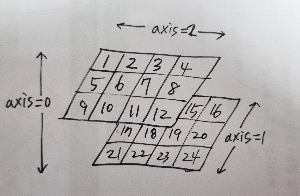 axis=2
1 2 3 4
5 6 7 8
axis=0
9 10 11 12 15 16
17 18 19 20
axis=1
21 22 23 24